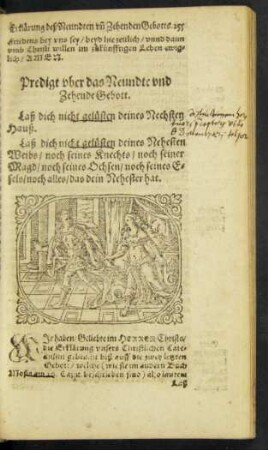 Erklärung deß Neundten vñ Zehenden Gebotts. 295
friedens bey vns sey / beyd hie zeitlich / vnnd dann
vmb Christi willen im zukünfftigen Leben ewig-
lich / AMEN.
Predigt vber das Neundte vnd
Zehende Gebott.
Laß dich nicht gelüsten deines Nechsten
Hauß.
Laß dich nicht gelüsten deines Nehesten
Weibs / noch seines Knechts / noch seiner
Magd / noch seines Ochsen / noch seines E-
sels / noch alles / das dein Nehester hat.
WIr haben Geliebte im HERREN Christo /
die Erklärung vnsers Christlichen Cate-
chismi gebracht biß auff die zwey letzten
Gebott / welche ( wie sie im andern Buch
Mosis am 20. Capit. beschrieben sind ) also lauten
Laß